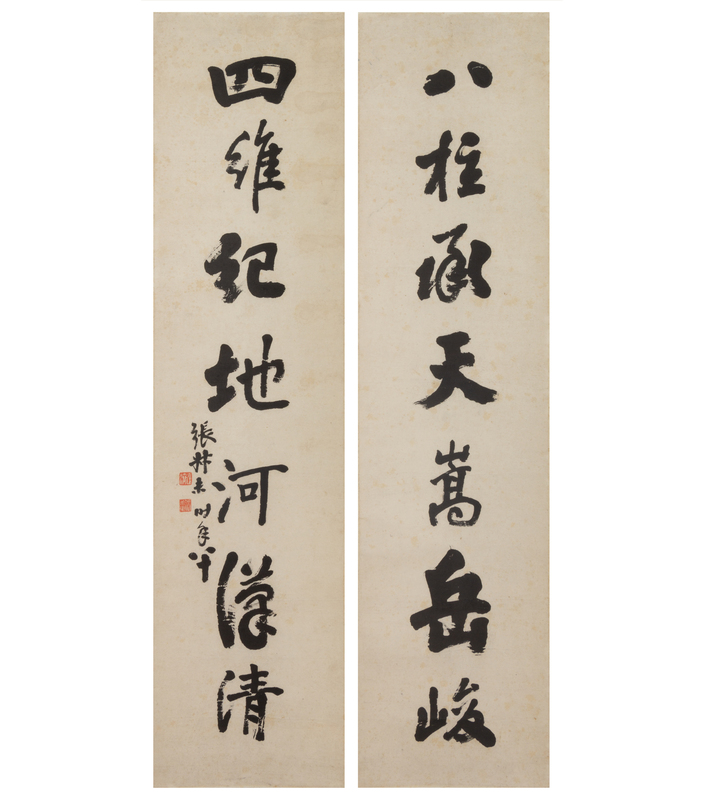 八柱承天嵩岳峻
四維紀地河漢清
張叔未時年八十